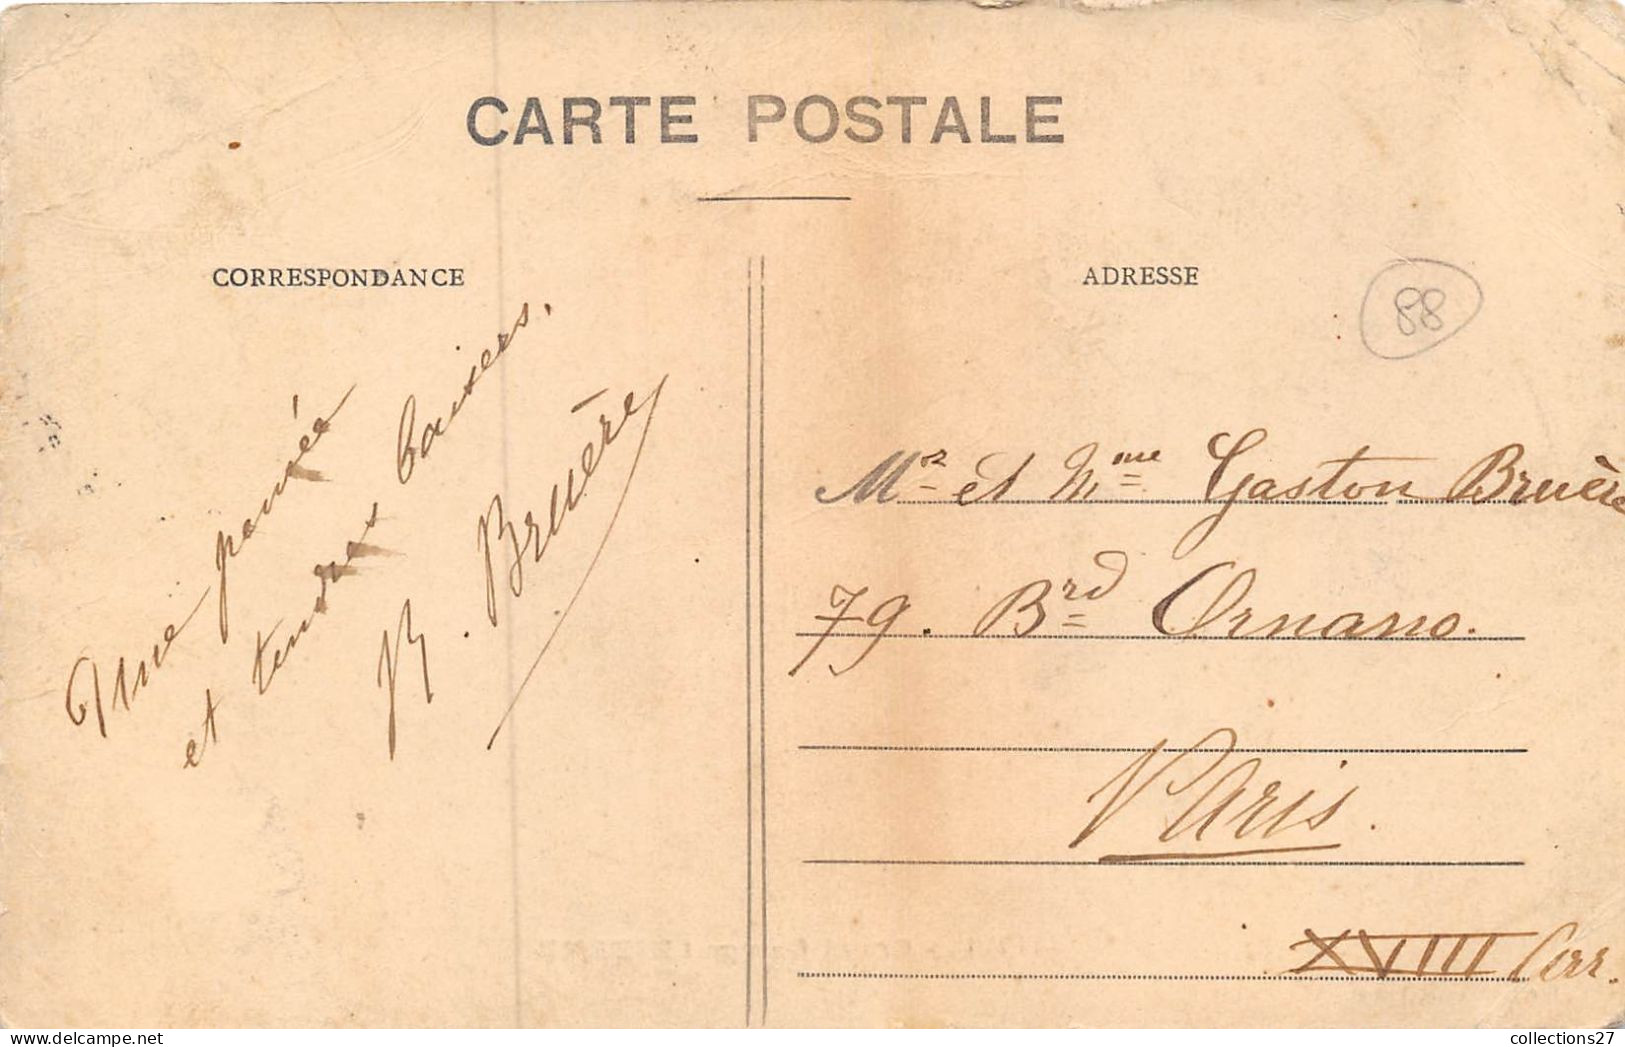 CARTE POSTALE
CORRESPONDANCE
Une pensée
et tendres baisers.
R. Bruère
ADRESSE
88
Mr et Mme Gaston Bruère
79. Brd Ornano.
Paris.
XVIII Arr.
collections27